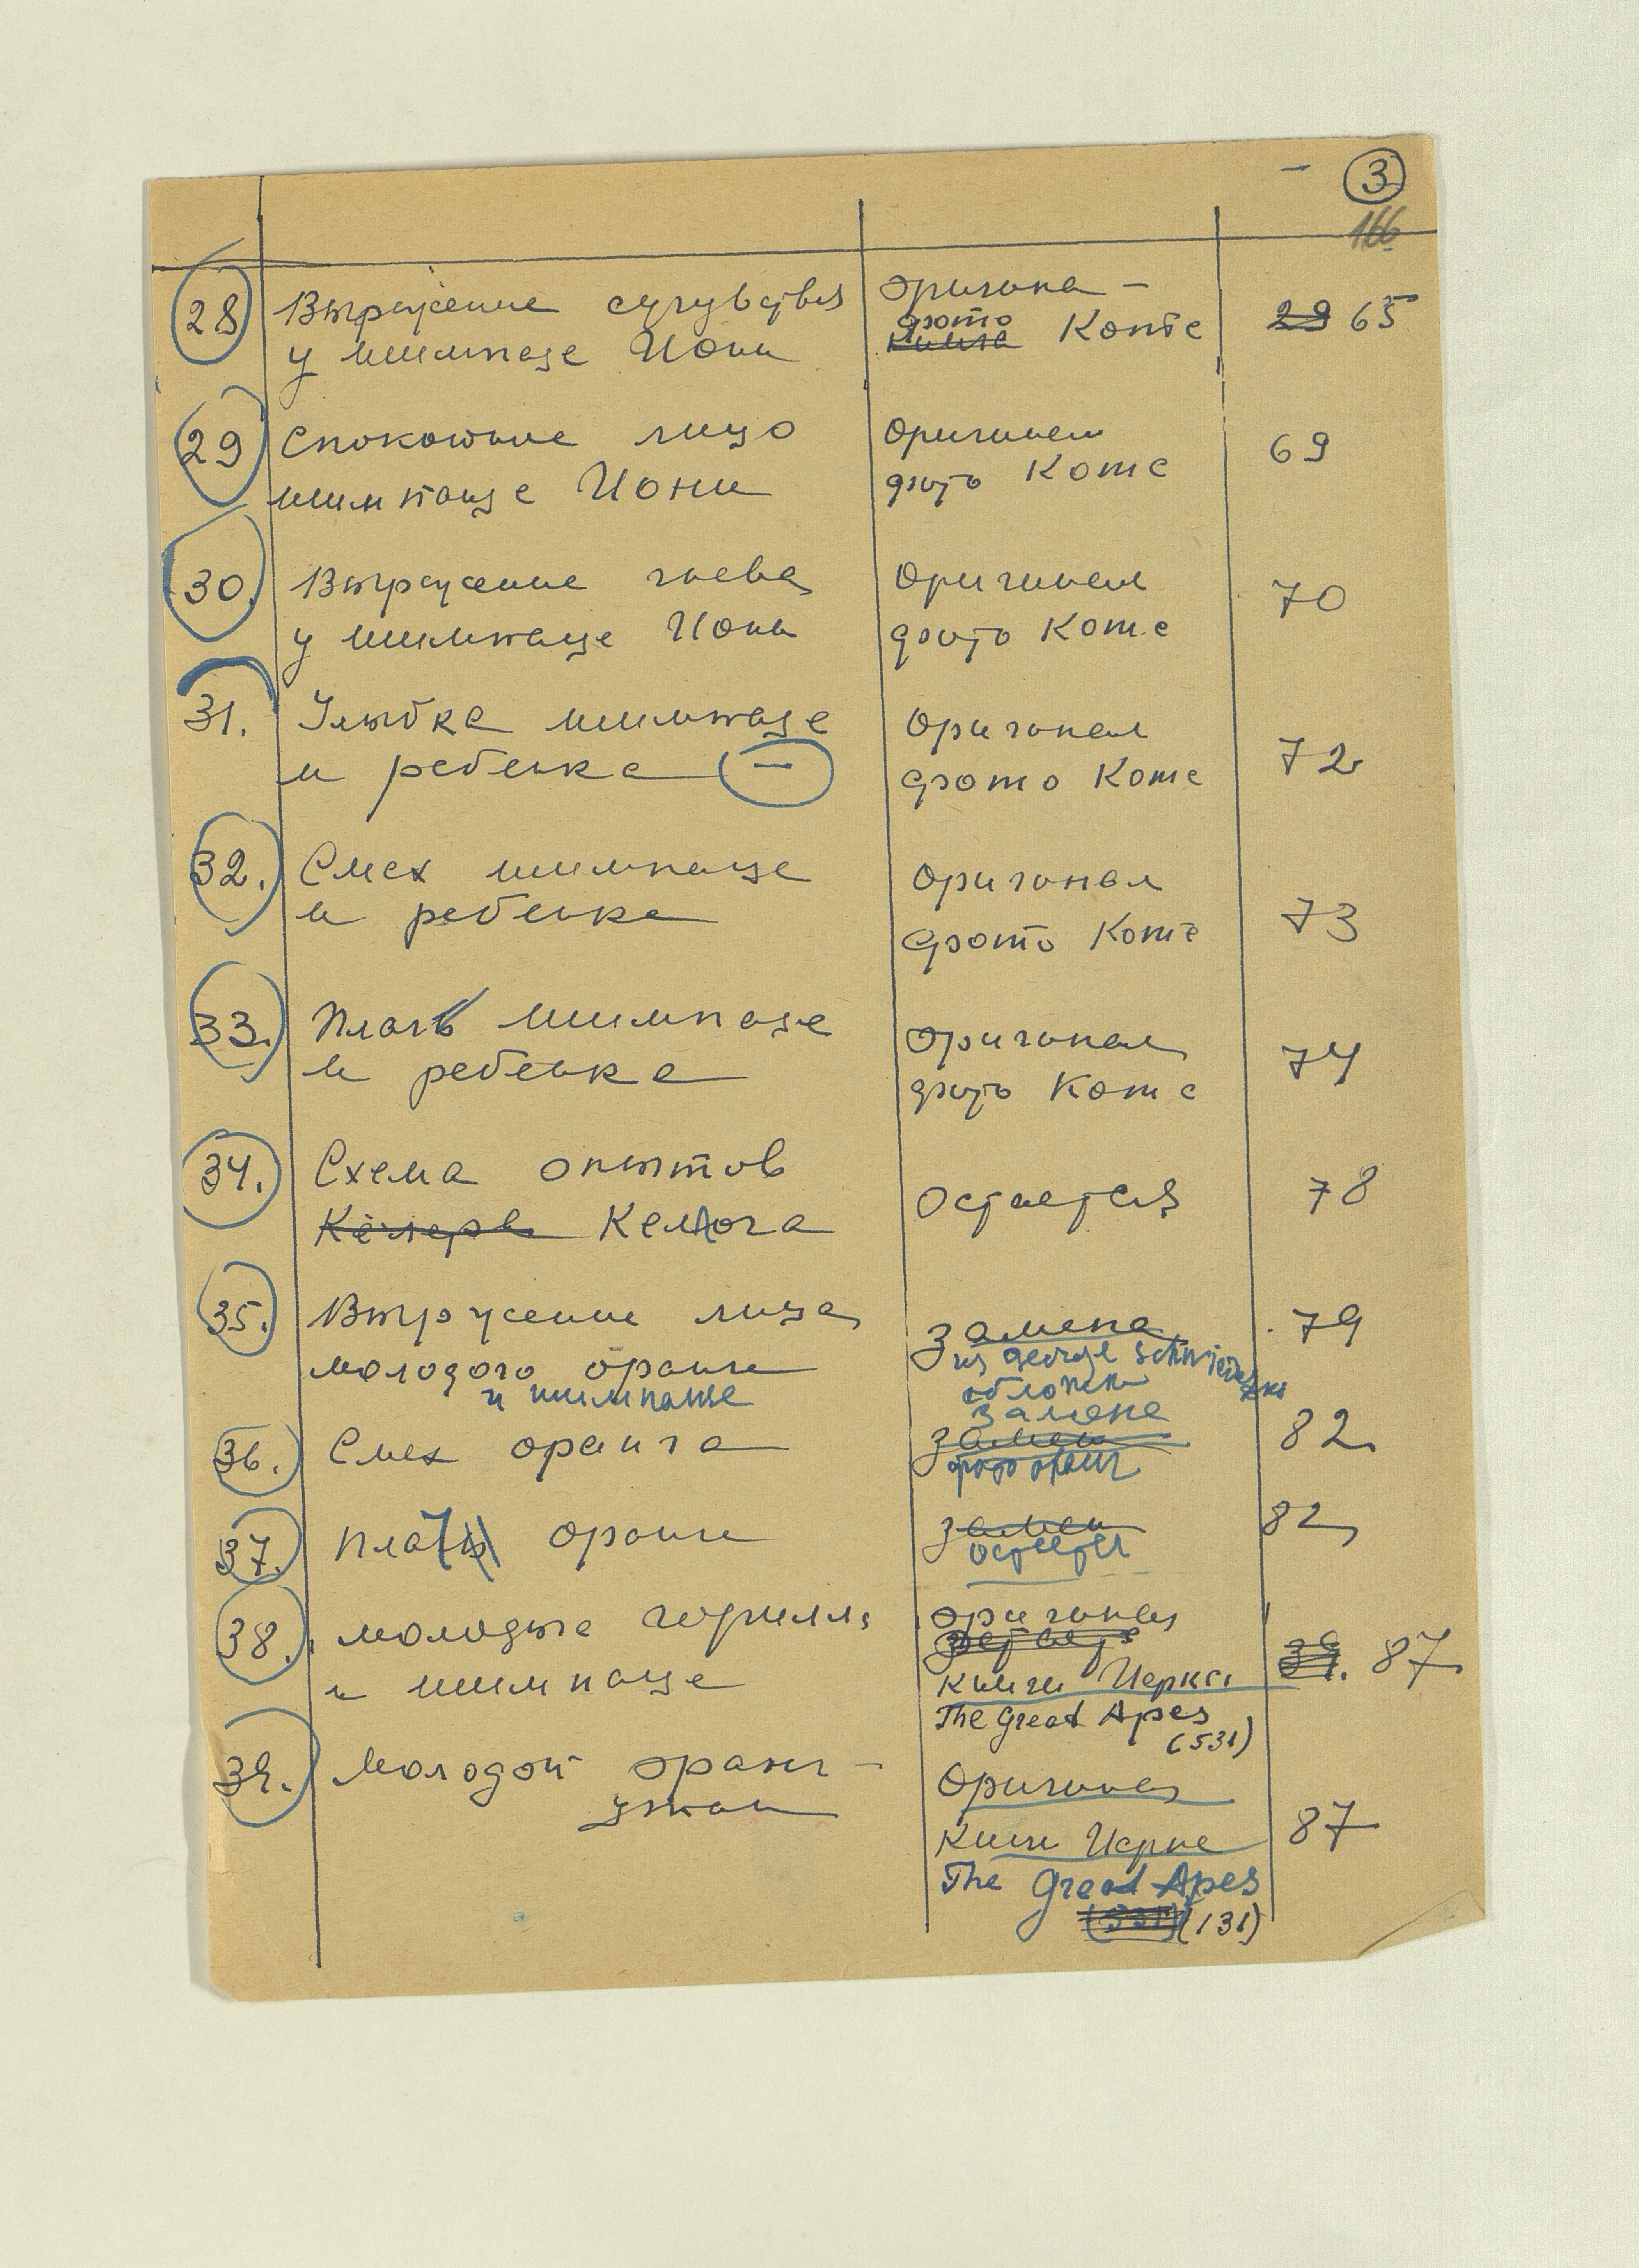 3
166
28 Выражение сочувствия
у шимпанзе Иони
оригинал
фото
книга Котс
29 65
29 Спокойное лицо
шимпанзе Иони
Оригинал
фото Котс
69
30. Выражение гнева
у шимпанзе Иони
Оригинал
фото Котс
70
31. Улыбка шимпанзе
и ребенка —
Оригинал
фото Котс
72
32. Смех шимпанзе
и ребенка
Оригинал
фото Котс
73
33. Плач шимпанзе
и ребенка
Оригинал
фото Котс
74
34. Схема опытов
Кёлера Келлога
Остается
78
35. Выражение лица
молодого оранга
и шимпанзе
Замена
из George
обложки
79
36. Смех оранга
замена
замена
фото оранг
82
37. Плач оранга
замена
остается
82
38. Молодые горилла
и шимпанзе
оригинал
книги Иеркса
The Great Apes
(531)
39. 87
39. Молодой оранг-
утан
Оригинал
книги Иеркса
The Great Apes
(531) (131)
87